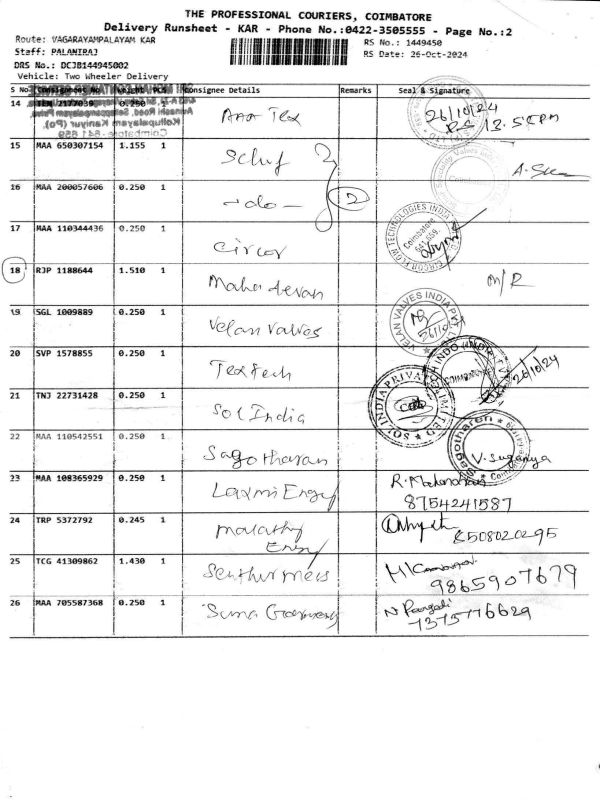 THE PROFESSIONAL COURIERS, COIMBATORE
Delivery Runsheet - KAR - Phone No.:0422-3505555 - Page No.:2
Route: VAGARAYAMPALAYAM KAR RS No.: 1449450
Staff: PALANIRAJ RS Date: 26-Oct-2024
DRS No.: DCJB144945002
Vehicle: Two Wheeler Delivery
S No Consignment No Weight PCS Consignee Details Remarks Seal & Signature
14 0.250 Tex 26/10/24
15 MAA 650307154 1.155 1
16 MAA 200057606 0.250 1 -do- 2
17 MAA 110344436 0.250 1 Circor
CIRCOR FLOW TECHNOLOGIES INDIA Coimbatore
18 RJP 1188644 1.510 1 Mahadevan M/R
19 SGL 1009889 0.250 1 Velan Valves
VELAN VALVES INDIA PVT 26/10/24
20 SVP 1578855 0.250 1 Textech 26/10/24
21 TNJ 22731428 0.250 1 Sol India
SOL INDIA PRIVATE LIMITED
22 MAA 110542551 0.250 1 Sagotharan V. Suganya
Sagotharan
23 MAA 108365929 0.250 1 Laxmi Engg
8754241587
24 TRP 5372792 0.245 1 Malathy
Engg 8508020295
25 TCG 41309862 1.430 1 9865907679
26 MAA 705587368 0.250 1 Suma
7373776629